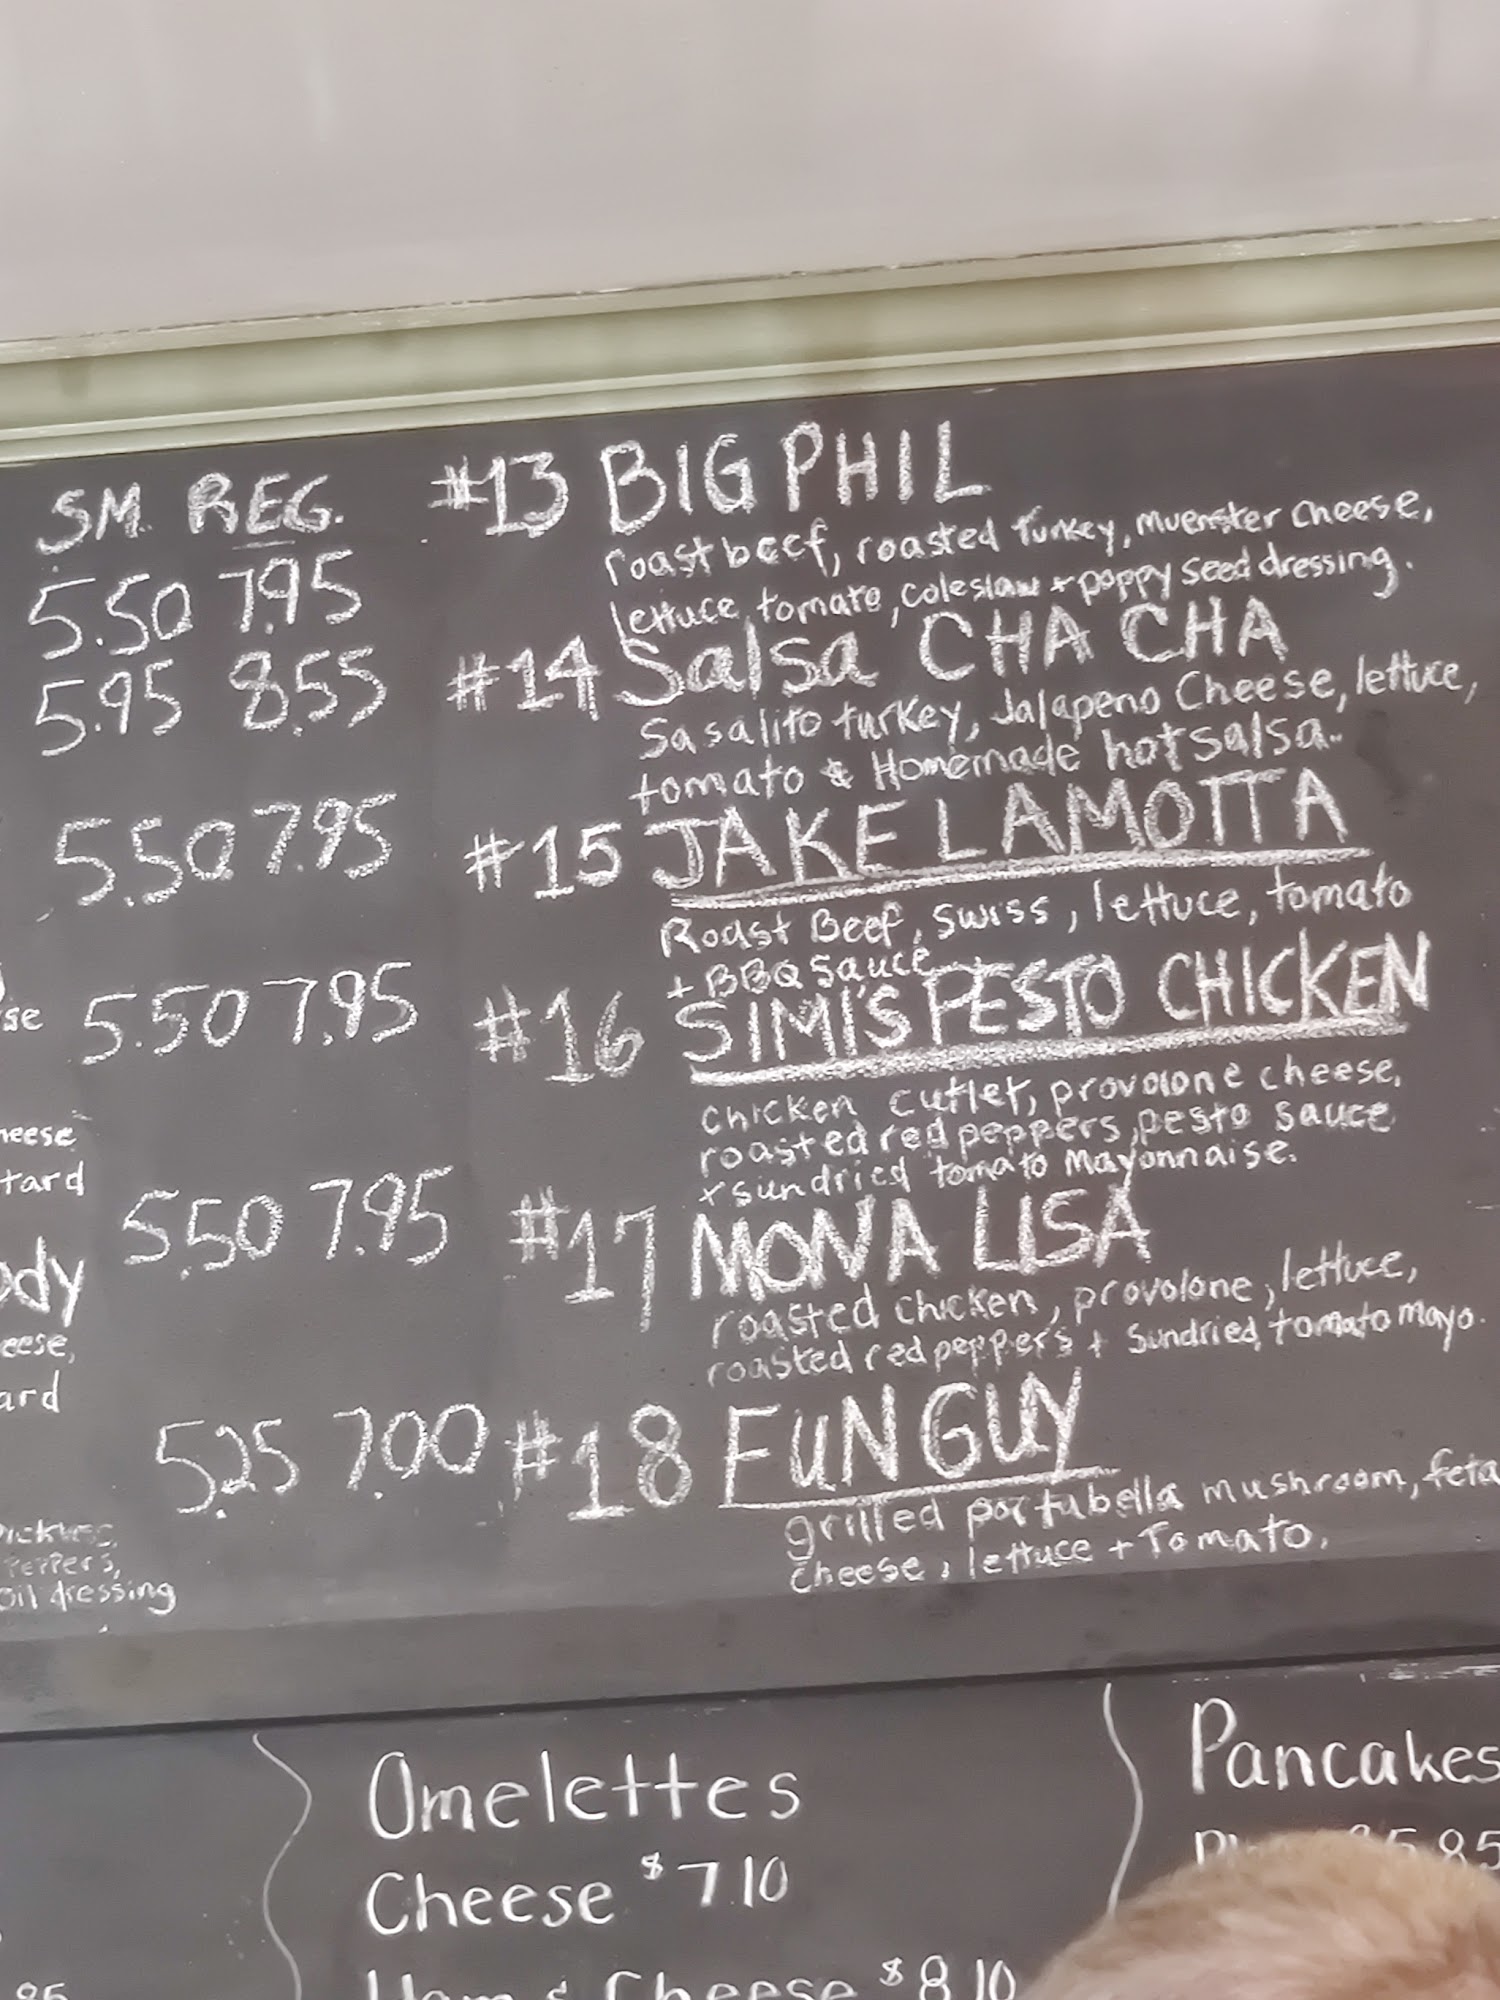 SM. REG.
5.50 7.95
5.95 8.55
5.50 7.95
5.50 7.95
5.50 7.95
5.25 7.00
#13 BIG PHIL
roast beef, roasted Turkey, muenster cheese,
lettuce, tomato, coleslaw + poppy seed dressing.
#14 Salsa CHA CHA
Sasalito turkey, Jalapeno Cheese, lettuce,
tomato & Homemade hot salsa.
#15 JAKE LAMOTTA
Roast Beef, swiss, lettuce, tomato
+ BBQ Sauce
#16 SIMI'S PESTO CHICKEN
chicken cutlet, provolone cheese,
roasted red peppers, pesto sauce
+ sundried tomato Mayonnaise.
#17 MONA LISA
roasted chicken, provolone, lettuce,
roasted red peppers + Sundried tomato mayo.
#18 FUN GUY
grilled portabella mushroom, feta
cheese, lettuce + Tomato.
se
heese
tard
ody
eese,
ard
Peppers,
oil dressing
Omelettes
Cheese $7.10
Ham & Cheese $8.10
Pancakes
5.85